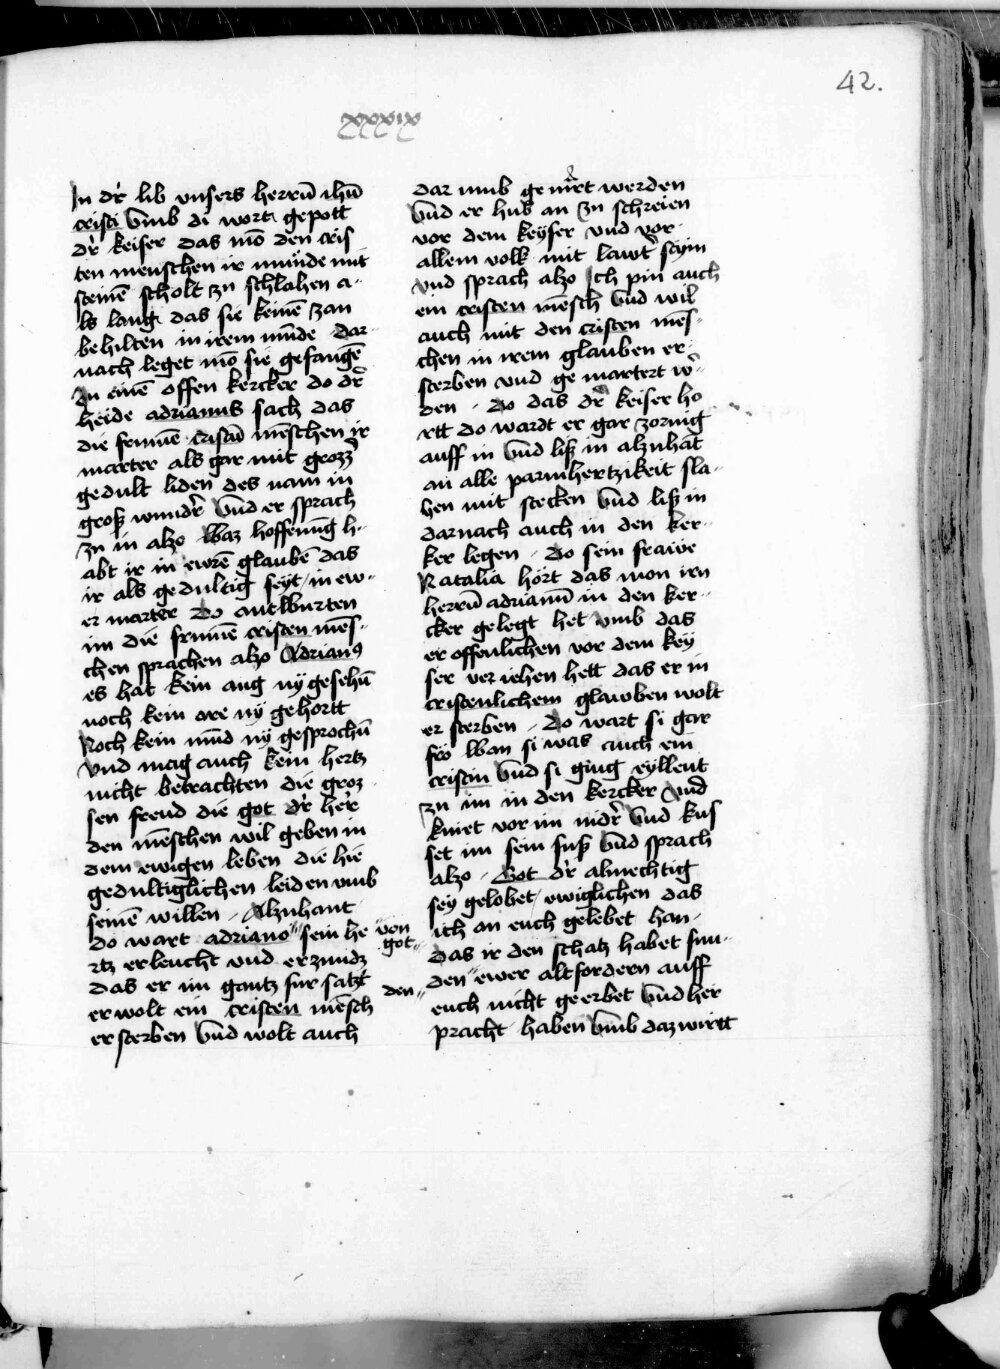 42.
xxxix
In dr̄ lib vnsers herrn̄ ihū
cristi vmb di wort gepott
dr̄ keiser das mō den cris
ten menschen ir munde mit
steinē scholt zu schlahen a-
ls lang das sie keinē zan
behilten in irem mūde dar-
nach leget mō sie gefangē
In einē offen kercker do dr̄
heide adrianus sach das
die frumē cristn̄ mēschen ir
marter als gar mit grozz̄
gedult liden des nam in
groß wundr̄ vnd er sprach
zu in alzo waz hoffenūg h-
abt ir in ewrē glaubē das
ir als gedultig seyt in ew-
er marter Do antwurten
im die frumē cristen mēs-
chen sprachen alzo Adrianꝰ
es hat kein aug ny gesehn̄
noch kein ore ny gehortt
Noch kein mūd ny gesprochn̄
vnd mag auch kein hertz
nicht betrachten die groz
sen freud die got dr̄ her
den mēschen wil geben in
dem ewigen leben die hie
gedultiglichen leiden vmb
seinē willen Alzuhant
do wart adriano sein he
rtz erleucht vnd erzundz
das er im gantz fur satzt
er wolt ein cristen mēsch
ersterben vnd wolt auch
von
got
den
dar vmb gemrt werden
vnd er hub an zu schreien
vor dem keyser vnd vor
allem volk mit lawt̄ stym
vnd sprach alzo Ich pin auch
ein cristen mēsch vnd wil
auch mit den cristen mēs-
chen in irem glauben er-
sterben vnd ge martert w̄-
den Do das dr̄ keiser ho
rtt do wardt er gar zornig
auff in vnd liß in alzuhāt
an alle parmhertzikeit sla-
hen mit stecken vnd liß in
darnach auch in den ker-
ker legen Do sein frawe
Natalia hort das mon irn
herrn̄ adrianū in den ker-
cker gelegt het vmb das
er offenlichen vor dem key
ser ver iehen hett das er in
cristenlichem glawben wolt
er sterben Do wart si gar
fro wan si was auch ein
cristin vnd si ging eyllent
zu im in den kercker vnd
kniet vor im nidr̄ vnd kus
set im sein fuß vnd sprach
alzo Got dr̄ almechtig
sey gelobet ewiglichen das
ich an euch gelebet han
das ir den schatz habet fun-
den ewer altfordern auff
euch nicht geerbet vnd her
pracht haben vmb daz wirtt